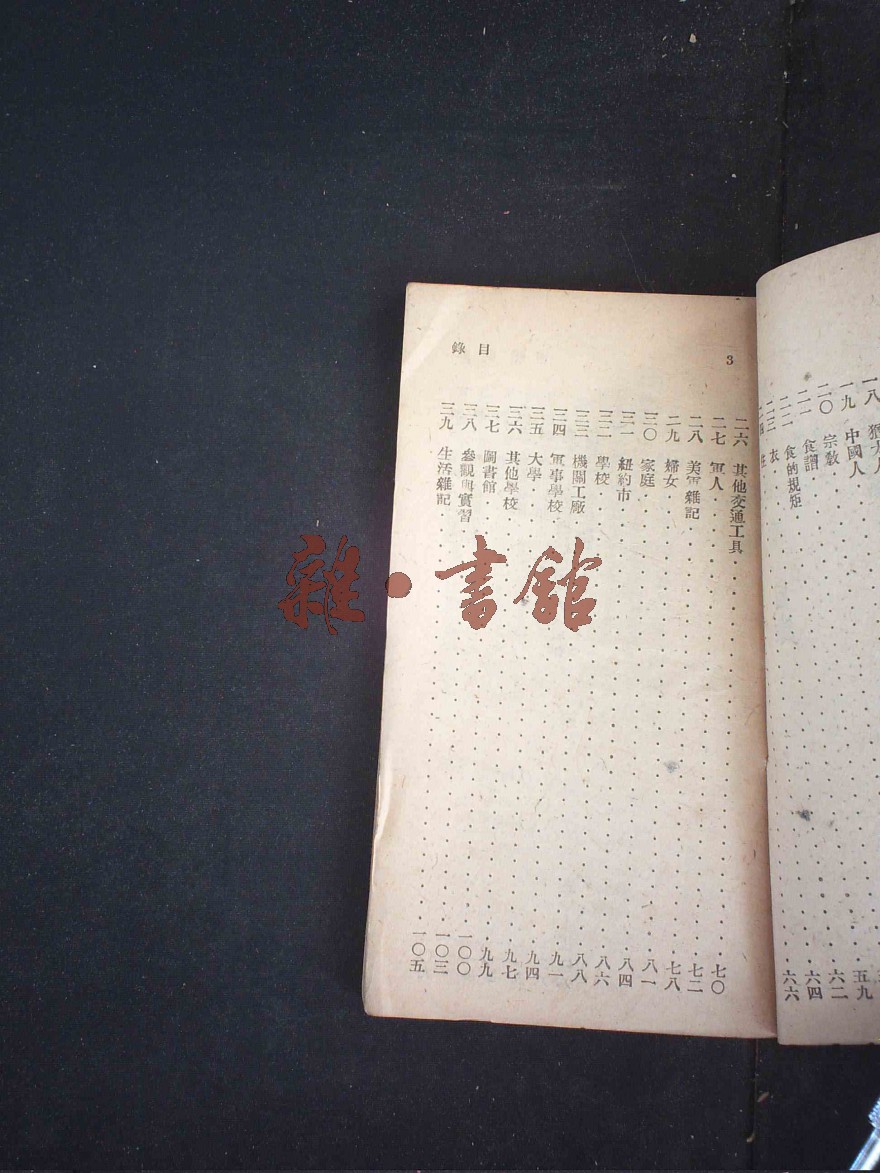 一八 猶太人
一九 中國人 五九
二〇 宗教 六二
二一 食譜 六四
二二 食的規矩 六六
二三 衣
3
目錄
二六 其他交通工具 七〇
二七 軍人 七二
二八 美軍雜記 七八
二九 婦女 八一
三〇 家庭 八四
三一 紐約市 八六
三二 學校 八八
三三 機關工廠 九一
三四 軍事學校 九四
三五 大學 九七
三六 其他學校 九九
三七 圖書館 一〇〇
三八 參觀與實習 一〇三
三九 生活雜記 一〇五
雜·書館